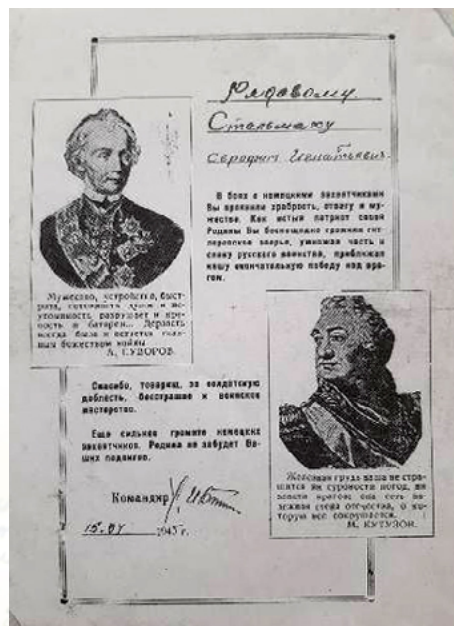 Рядовому
Стальмаху
Серафим Игнатьевич
В боях с немецкими захватчиками
Вы проявили храбрость, отвагу и му-
жество. Как истый патриот своей
Родины Вы беспощадно громили гит-
леровское зверье, умножая честь и
славу русского воинства, приближая
нашу окончательную победу над вра-
гом.
Мужество, быст-
рота,
разрушает и кре-
пость и батареи... Дерзость
всегда была и остается
божеством войны
А. СУВОРОВ.
Спасибо, товарищ, за солдатскую
доблесть, бесстрашие и воинское
мастерство.
Еще сильнее громите немецких
захватчиков. Родина не забудет Ва-
ших подвигов.
Железная грудь ваша не стра-
шится ни суровости погод, ни
злости врагов: она есть на-
дежная стена отечества, о ко-
торую все сокрушается.
М. КУТУЗОВ.
Командир
15.04 1945 г.